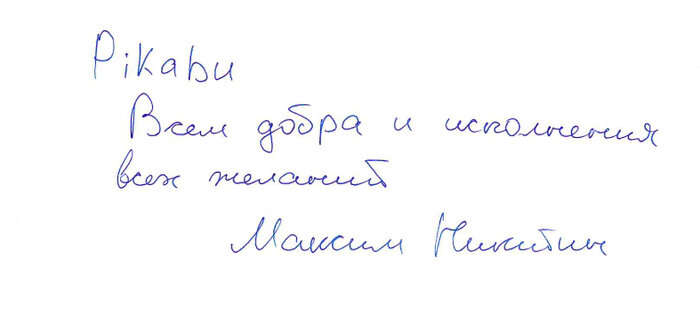 Pikabu
Всем добра и исполнения
всех желаний
Максим Никитин